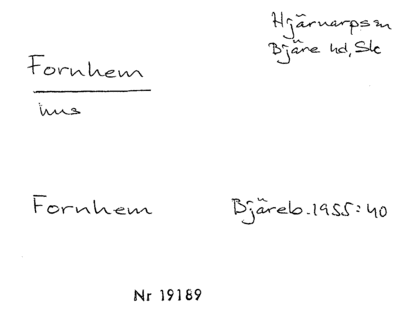 Hjärnarps sn
Bjäre hd, Sk
Fornhem
hus
Fornhem Bjäreb. 1955:40
Nr 19189